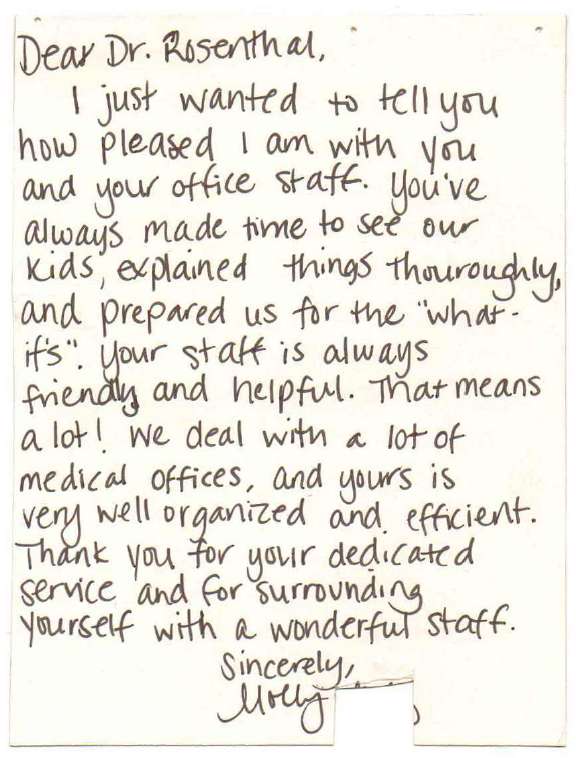 Dear Dr. Rosenthal,
I just wanted to tell you
how pleased I am with you
and your office staff. You've
always made time to see our
kids, explained things thouroughly,
and prepared us for the "what-
if's". Your staff is always
friendly and helpful. That means
a lot! We deal with a lot of
medical offices, and yours is
very well organized and efficient.
Thank you for your dedicated
service and for surrounding
yourself with a wonderful staff.
Sincerely,
Molly